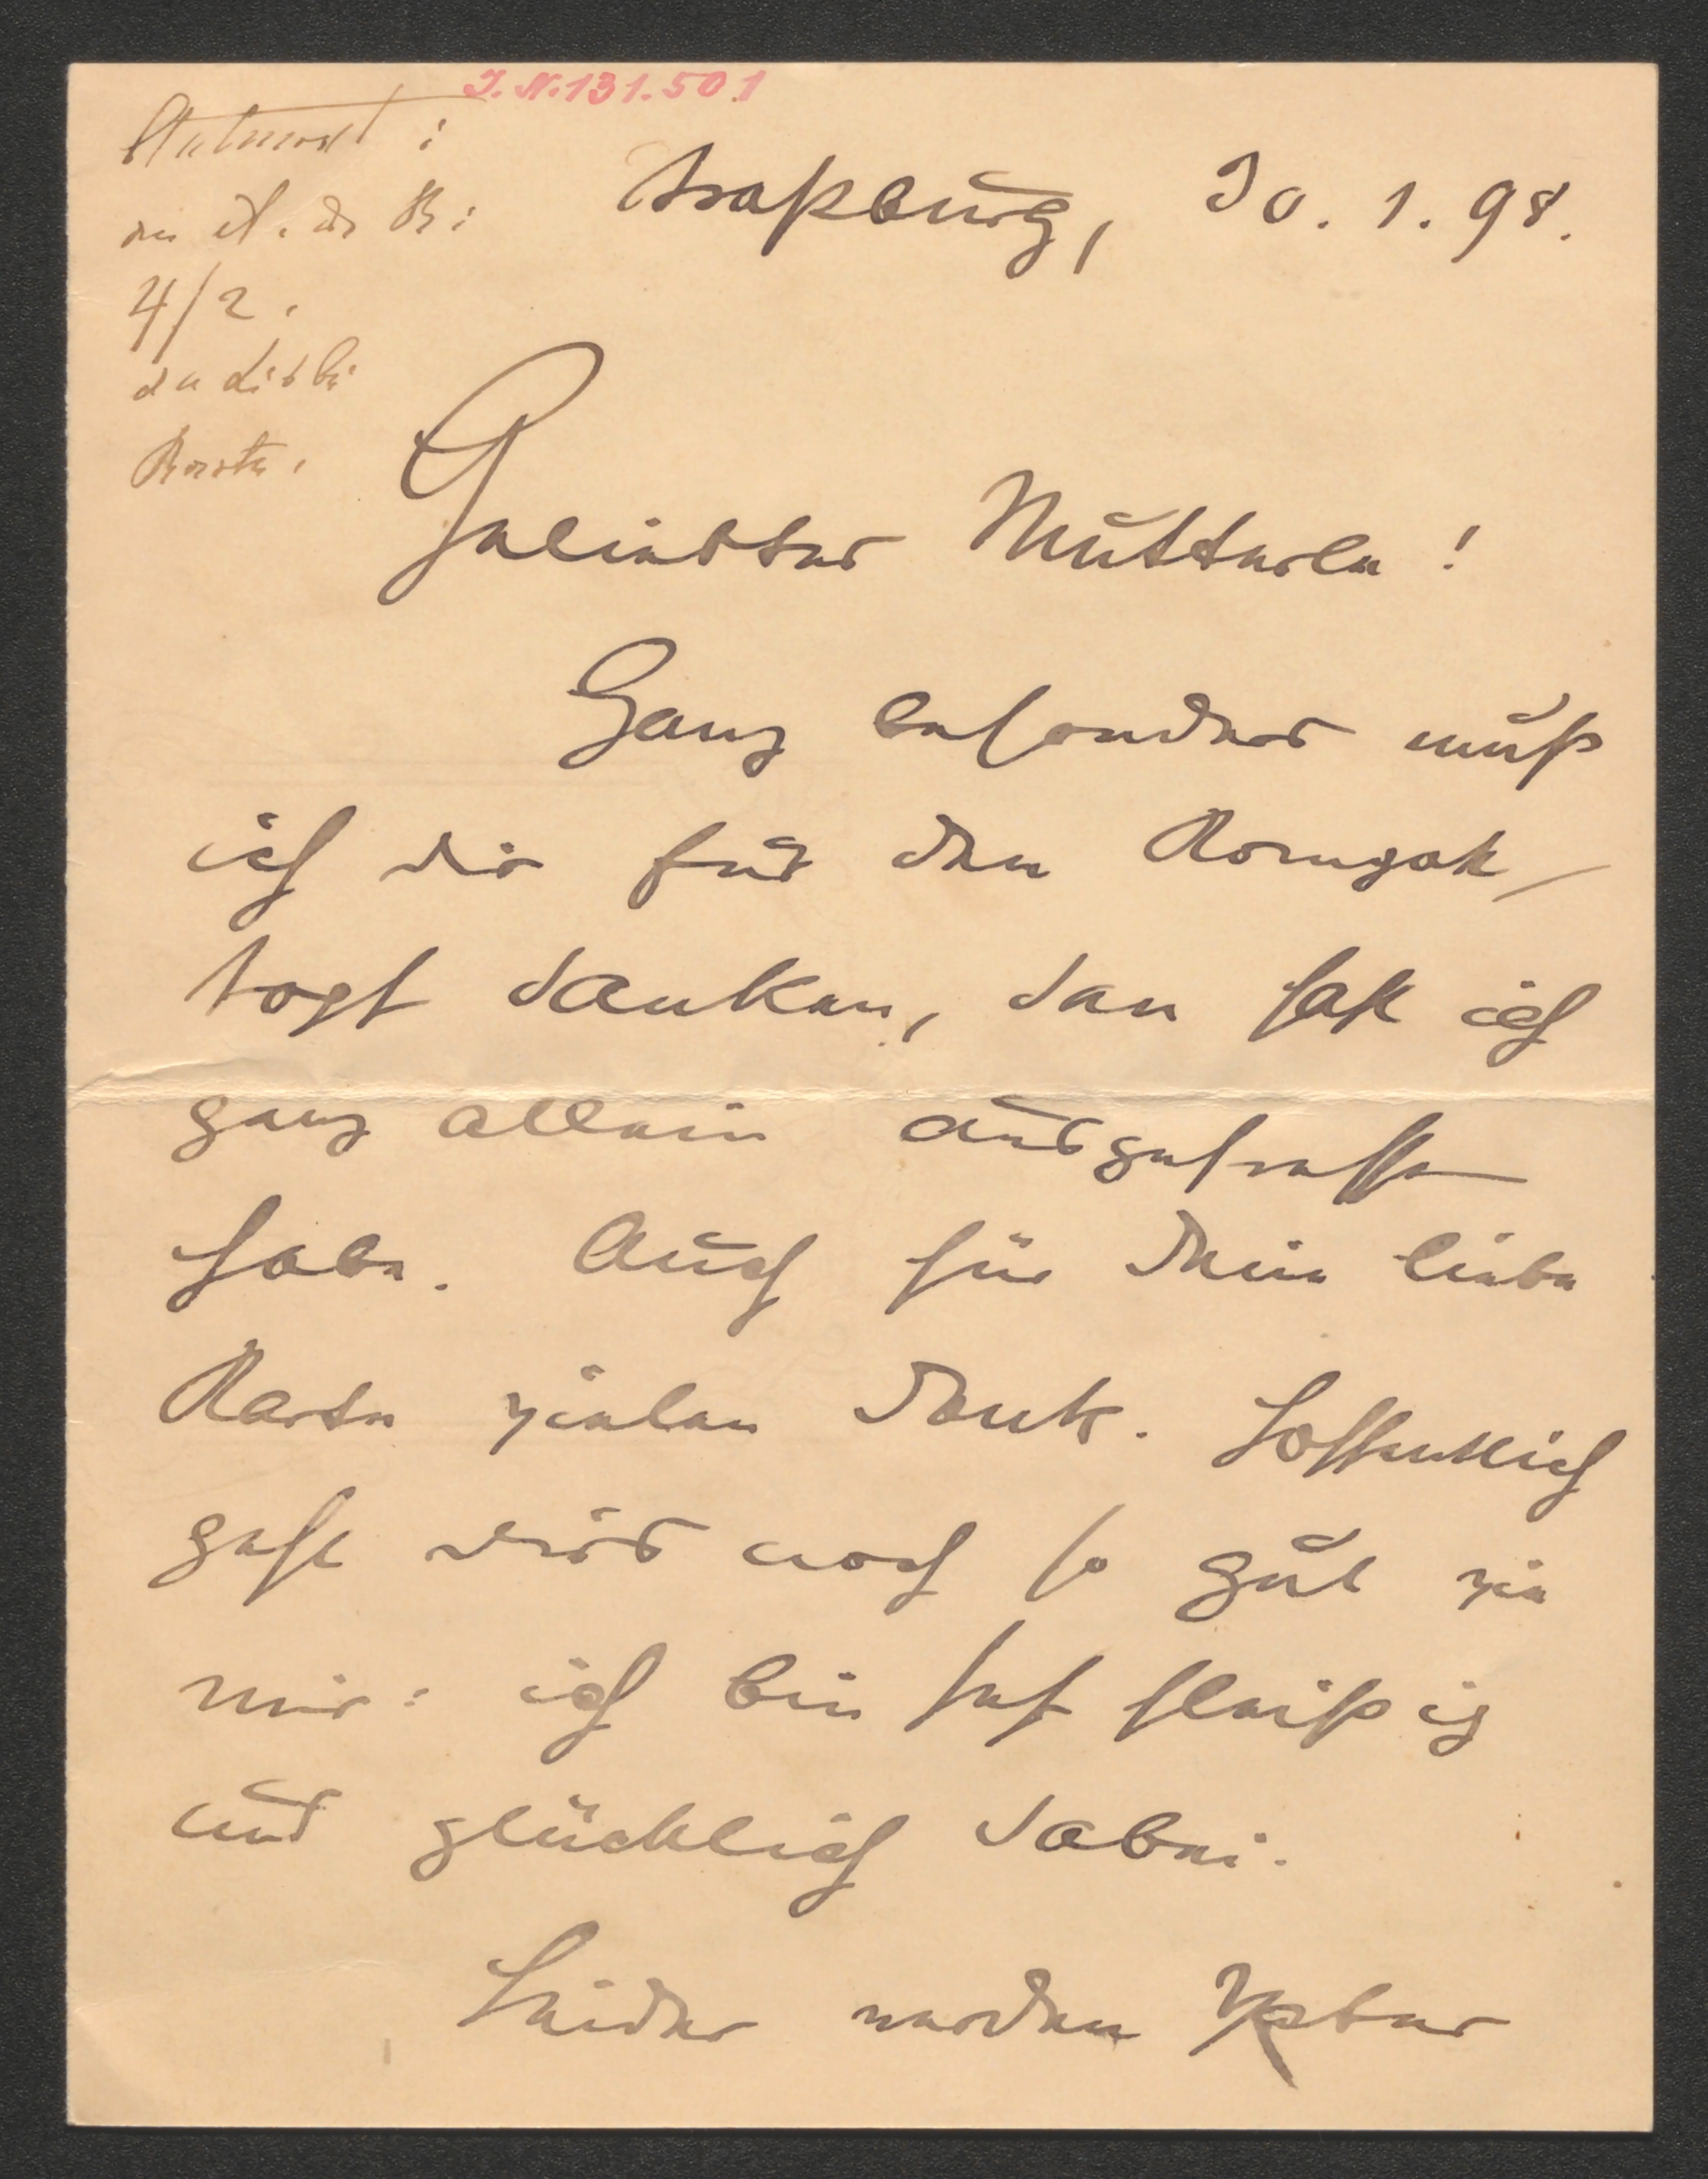 I.N. 131.501
Antwort:
4/2.
Karte.
Straßburg, 30. 1. 98.
Geliebtes Mutterle!
Ganz besonders muß
ich dir für den
danken, den ich
ganz allein ausgefressen
habe. Auch für Deine liebe
Karte vielen Dank. Hoffentlich
geht noch so gut wie
mir: ich bin sehr fleißig
und glücklich dabei.
Leider werden Vater